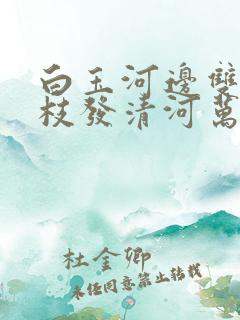 白玉河邊雙
枝發清河萬
杜金卿
未经同意禁止转载